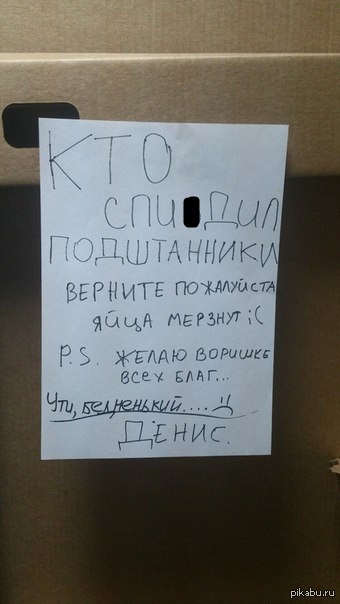 КТО
СПИ ДИЛ
ПОДШТАННИКИ
ВЕРНИТЕ ПОЖАЛУЙСТА
ЯЙЦА МЕРЗНУТ ;(
P.S. ЖЕЛАЮ ВОРИШКЕ
ВСЕХ БЛАГ...
Ути, бедненький.... :(
ДЕНИС.
pikabu.ru